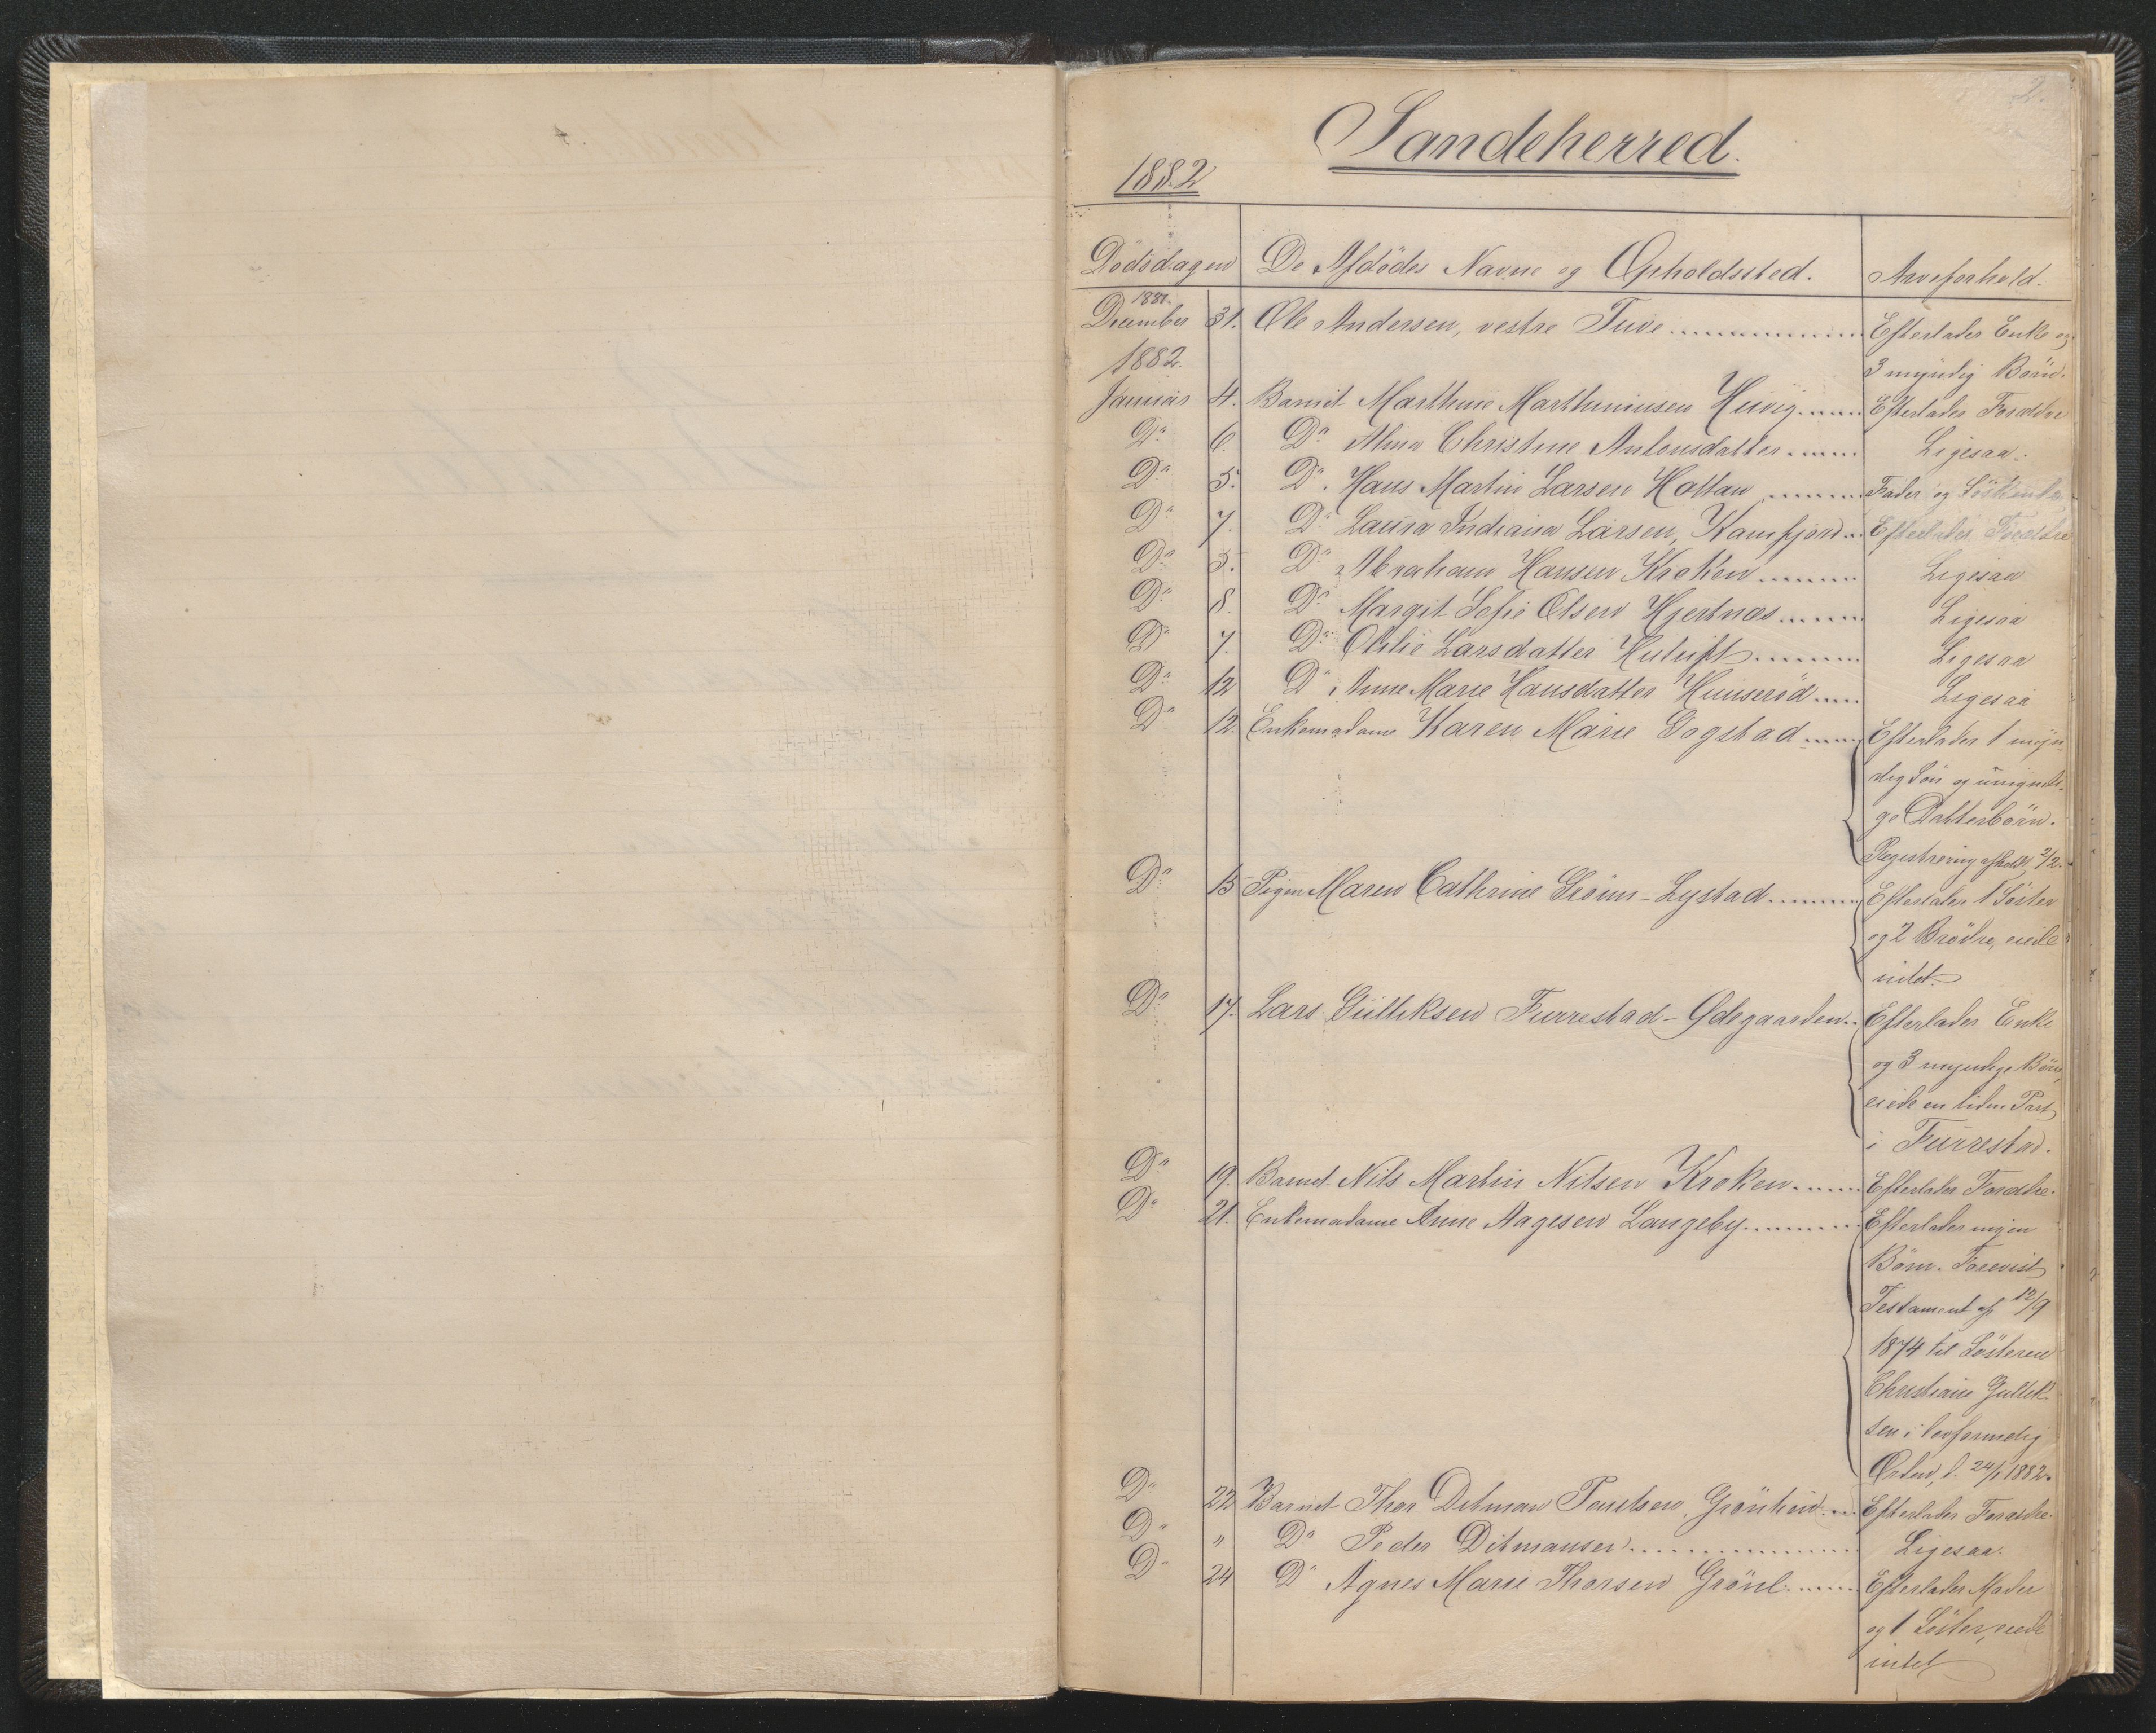 2.
Sandeherred.
1882
Dödsdagen De Afdödes Navne og Opholdssted. Arveforhold.
1881.
December 31. Ole Andersen, vestre Tuve Efterlader Enke og
1882. 3 myndig Börn.
Januar 4. Barnet Marthine Marthiniusen Efterlader Forældre
Do 6. Do Alma Christine Antonsdatter Ligesaa.
Do 5. Do Hans Martin Larsen Holtan Fader og Söskende
Do 7. Do Laura Indiana Larsen, Kamfjord Efterlader Forældre
Do 5. Do Abraham Hansen Kroken Ligesaa
Do 8. Do Margit Sofie Olsen Hjertnæs Ligesaa
Do 7. Do Larsdatter Ligesaa
Do 12 Do Anne Marie Hansdatter Hunseröd Ligesaa
Do 12. Enkemadame Karen Marie Gogstad Efterlader 1 myn-
dig Sön og umyndi-
ge Datterbörn.
Registrering afholdt 2/2.
Do 15 Pigen Maren Cathrine Lystad Efterlader 1 Söster
og 2 Brödre, eiede
intet.
Do 17. Lars Gulliksen Furrestad-Ödegaarden Efterlader Enke
og 3 myndige Börn,
eiede en liden Part
i Furrestad.
Do 19. Barnet Nils Martin Nilsen Kroken Efterlader Forældre.
Do 21. Enkemadame Anne Aagesen Langeby Efterlader ingen
Börn. Forevist
Testament af 12/9
1874 til Sösteren
Christiane Gullik-
sen i lovformelig
Orden, d. 24/1 1882.
Do 22 Barnet Thor Ditman Efterlader Forældre.
Do " Do Peder Ditmansen Ligesaa.
Do 24 Do Agnes Marie Thorsen Grönl. Efterlader Moder
og 1 Söster, eiede
intet